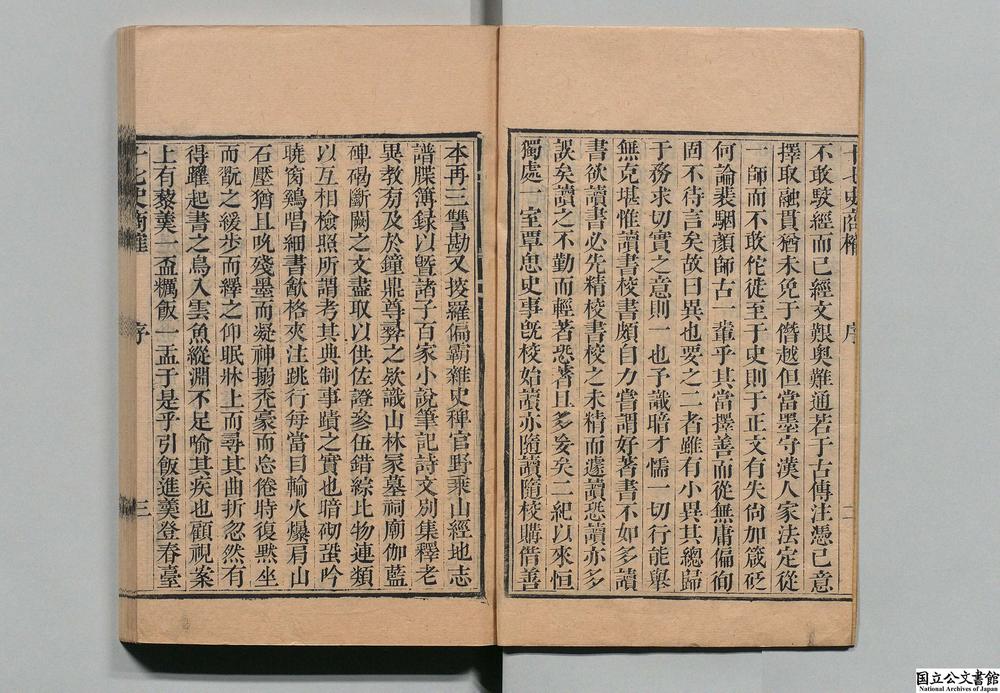 十七史商榷 序 二
不敢駁經而已經文艱奧難通若于古傳注憑己意
擇取融貫猶未免于僭越但當墨守漢人家法定從
一師而不敢佗徒至于史則于正文有失尙加箴砭
何論裴駰顏師古一輩乎其當擇善而從無庸偏徇
固不待言矣故曰異也要之二者雖有小異其總歸
于務求切實之意則一也予識暗才懦一切行能舉
無克堪惟讀書校書頗自力嘗謂好著書不如多讀
書欲讀書必先精校書校之未精而遽讀恐讀亦多
誤矣讀之不勤而輕著恐著且多妄矣二紀以來恒
獨處一室覃思史事旣校始讀亦隨讀隨校購借善
本再三讐勘又搜羅偏霸雜史稗官野乘山經地志
譜牒簿錄以曁諸子百家小說筆記詩文別集釋老
異教旁及於鐘鼎尊彝之欵識山林冢墓祠廟伽藍
碑碣斷闕之文盡取以供佐證參伍錯綜比物連類
以互相檢照所謂考其典制事蹟之實也暗砌蛩吟
曉窗鷄唱細書歙格夾注跳行每當目輪火爆肩山
石壓猶且吮殘墨而凝神搦禿豪而忘倦時復默坐
而翫之緩步而繹之仰眠牀上而尋其曲折忽然有
得躍起書之鳥入雲魚縱淵不足喻其疾也顧視案
上有藜羹一盃糲飯一盂于是乎引飯進羹登春臺
十七史商榷 序 三
国立公文書館
National Archives of Japan